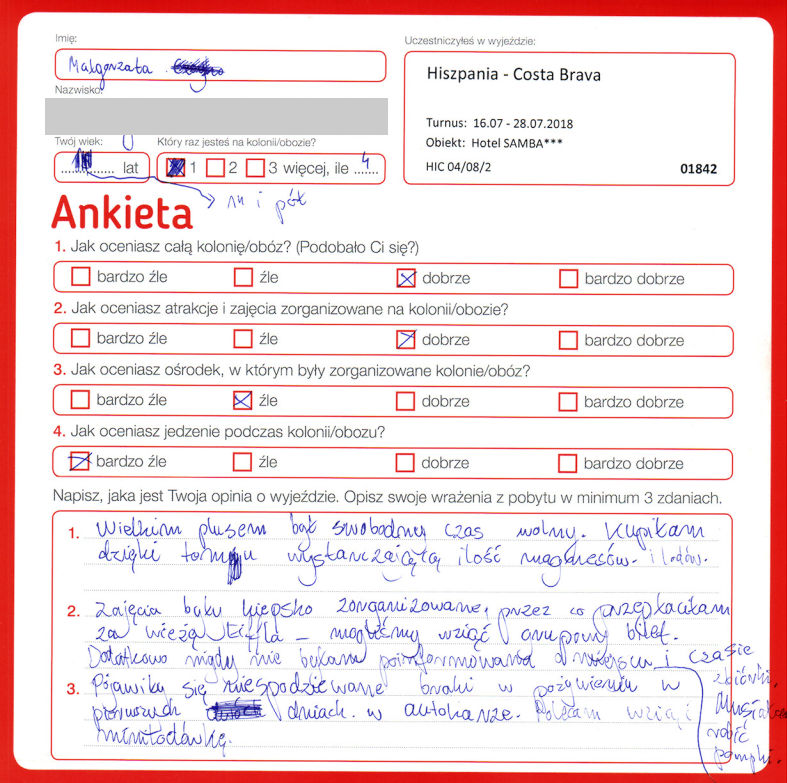 Imię:
Małgorzata
Nazwisko:
Twój wiek:
Który raz jesteś na kolonii/obozie?
lat
1 2 3 więcej, ile 4
14 i pół
Uczestniczyłeś w wyjeździe:
Hiszpania - Costa Brava
Turnus: 16.07 - 28.07.2018
Obiekt: Hotel SAMBA***
HIC 04/08/2 01842
Ankieta
1. Jak oceniasz całą kolonię/obóz? (Podobało Ci się?)
bardzo źle źle dobrze bardzo dobrze
2. Jak oceniasz atrakcje i zajęcia zorganizowane na kolonii/obozie?
bardzo źle źle dobrze bardzo dobrze
3. Jak oceniasz ośrodek, w którym były zorganizowane kolonie/obóz?
bardzo źle źle dobrze bardzo dobrze
4. Jak oceniasz jedzenie podczas kolonii/obozu?
bardzo źle źle dobrze bardzo dobrze
Napisz, jaka jest Twoja opinia o wyjeździe. Opisz swoje wrażenia z pobytu w minimum 3 zdaniach.
1. Wielkim plusem był swobodny czas wolny. Kupiłam
dzięki temu wystarczającą ilość magnesów. i lodów.
2. Zajęcia były kiepsko zorganizowane, przez co przepłaciłam
za wieżę Eiffla – mogliśmy wziąć grupowy bilet.
Dodatkowo nigdy nie byłam poinformowana o miejscu i czasie
zbiórki. Musiałam
robić
pompki.
3. Pojawiły się niespodziewane braki w pożywieniu w
pierwszych dniach. w autokarze. Polecam wziąć